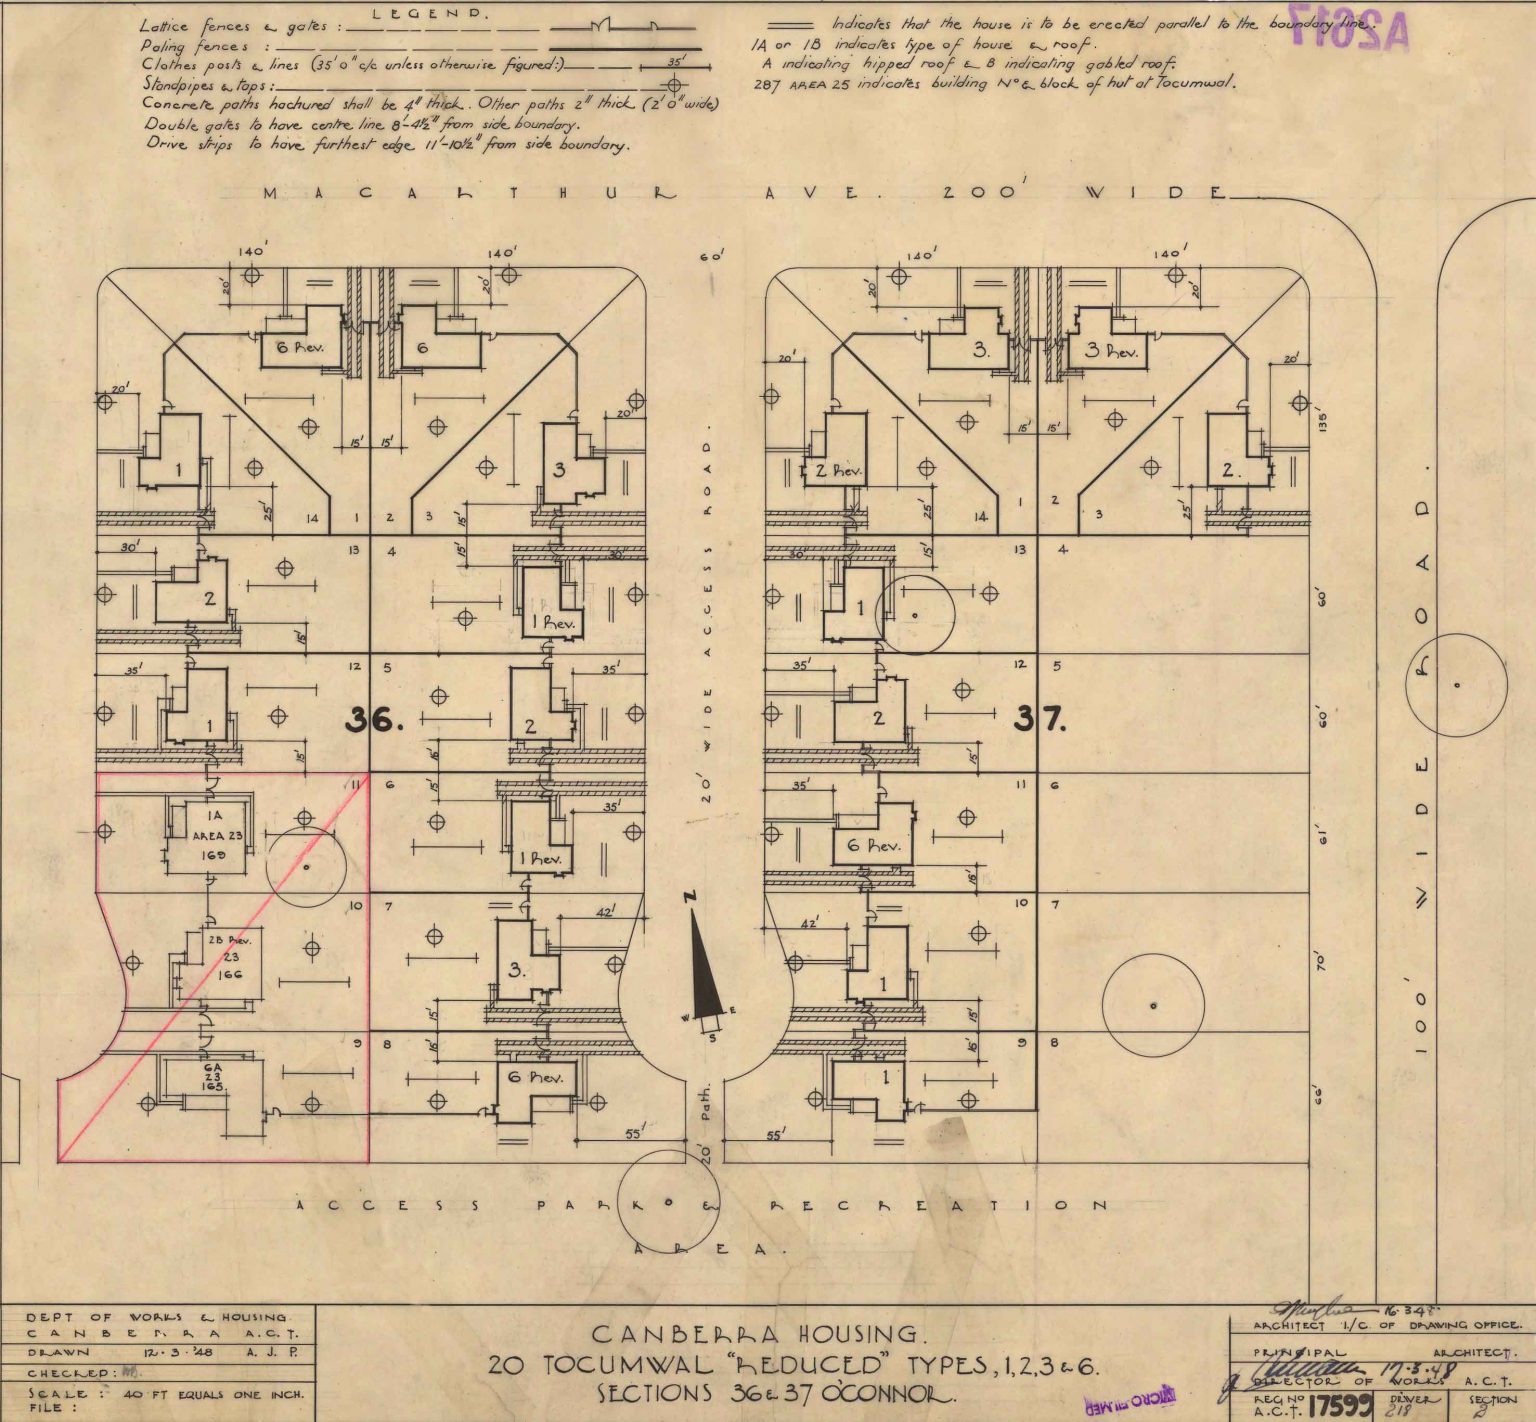 LEGEND.
Lattice fences & gates :
Paling fences :
Clothes posts & lines (35'0" c/c unless otherwise figured:) 35'
Standpipes & taps :
Concrete paths hachured shall be 4" thick. Other paths 2" thick (2'0" wide)
Double gates to have centre line 8'-4½" from side boundary.
Drive strips to have furthest edge 11'-10½" from side boundary.
Indicates that the house is to be erected parallel to the boundary line.
1A or 1B indicates type of house & roof.
A indicating hipped roof & B indicating gabled roof.
287 AREA 25 indicates building No & block of hut at Tocumwal.
A2617
MACARTHUR AVE. 200' WIDE
140' 140' 60' 140' 140'
20' 20' 20' 20'
6 Rev. 6 3. 3 Rev.
20' 20' 20' 20'
15' 15' 15' 15'
135'
1 3 2 Rev. 2.
25' 15' 25' 25'
14 1 2 3 14 1 2 3
13 4 13 4
30' 15' 30' 30' 15'
2 1 Rev. 1
60'
15'
12 5 12 5
35' 35' 35'
1 36. 2 2 37.
60'
15' 15' 15'
11 6 11 6
15'
35' 35'
1A
AREA 23
169
1 Rev. 6 Rev.
61'
15'
10 7 10 7
42' 42'
2B Rev.
23
166
3. 1
70'
15' 15'
9 8 9 8
15' 15'
6A
23
165.
6 Rev. 1
66'
55' 55'
20' WIDE ACCESS ROAD.
N
W E
S
20' Path.
100' WIDE ROAD.
ACCESS PARK & RECREATION
AREA.
DEPT OF WORKS & HOUSING.
CANBERRA A.C.T.
DRAWN 12·3·'48 A.J.P.
CHECKED:
SCALE : 40 FT EQUALS ONE INCH.
FILE :
CANBERRA HOUSING.
20 TOCUMWAL "REDUCED" TYPES, 1,2,3 & 6.
SECTIONS 36 & 37 O'CONNOR.
MICROFILMED
16·3·48
ARCHITECT I/C. OF DRAWING OFFICE.
PRINCIPAL ARCHITECT.
17·3·48
DIRECTOR OF WORKS A.C.T.
REG No
A.C.T. 17599
DRWER
218
SECTION
2